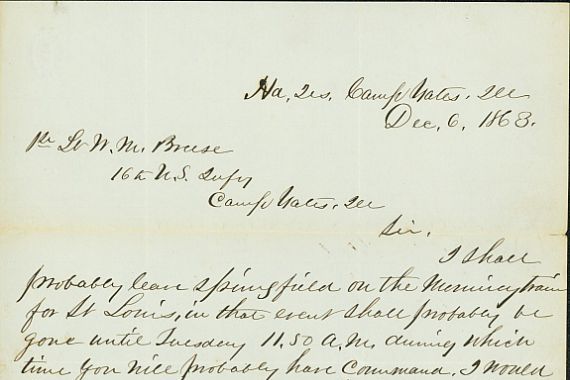 Hd, Qrs. Camp Yates, Ill
Dec, 6, 1863.
1st Lt W. M. Breese
16th U.S. Infy
Camp Yates, Ill
Sir,
I shall
probably leave Springfield on the Morning train
for St Louis, in that event shall probably be
gone until Tuesday 11.50 A.M. during which
time you will probably have Command. I would